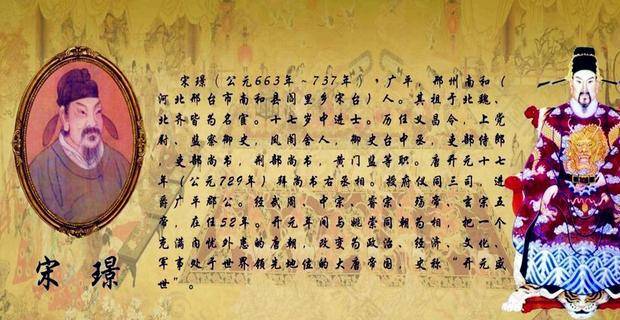 宋璟(公元663年~737年),广平,邢州南和(
河北邢台市南和县阎里乡宋台)人。其祖于北魏、
北齐皆为名宦。十七岁中进士。历任义昌令,上党
尉、监察御史,凤阁舍人,御史台中丞,吏部侍郎
,吏部尚书,刑部尚书,黄门监等职。唐开元十七
年(公元729年)拜尚书右丞相。授府仪同三司,进
爵广平郡公。经武周、中宗、睿宗、殇帝、玄宗五
帝,在任52年。开元年间与姚崇同朝为相,把一个
充满内忧外患的唐朝,改变为政治、经济、文化、
军事处于世界领先地位的大唐帝国,史称"开元盛
世"。
宋 璟